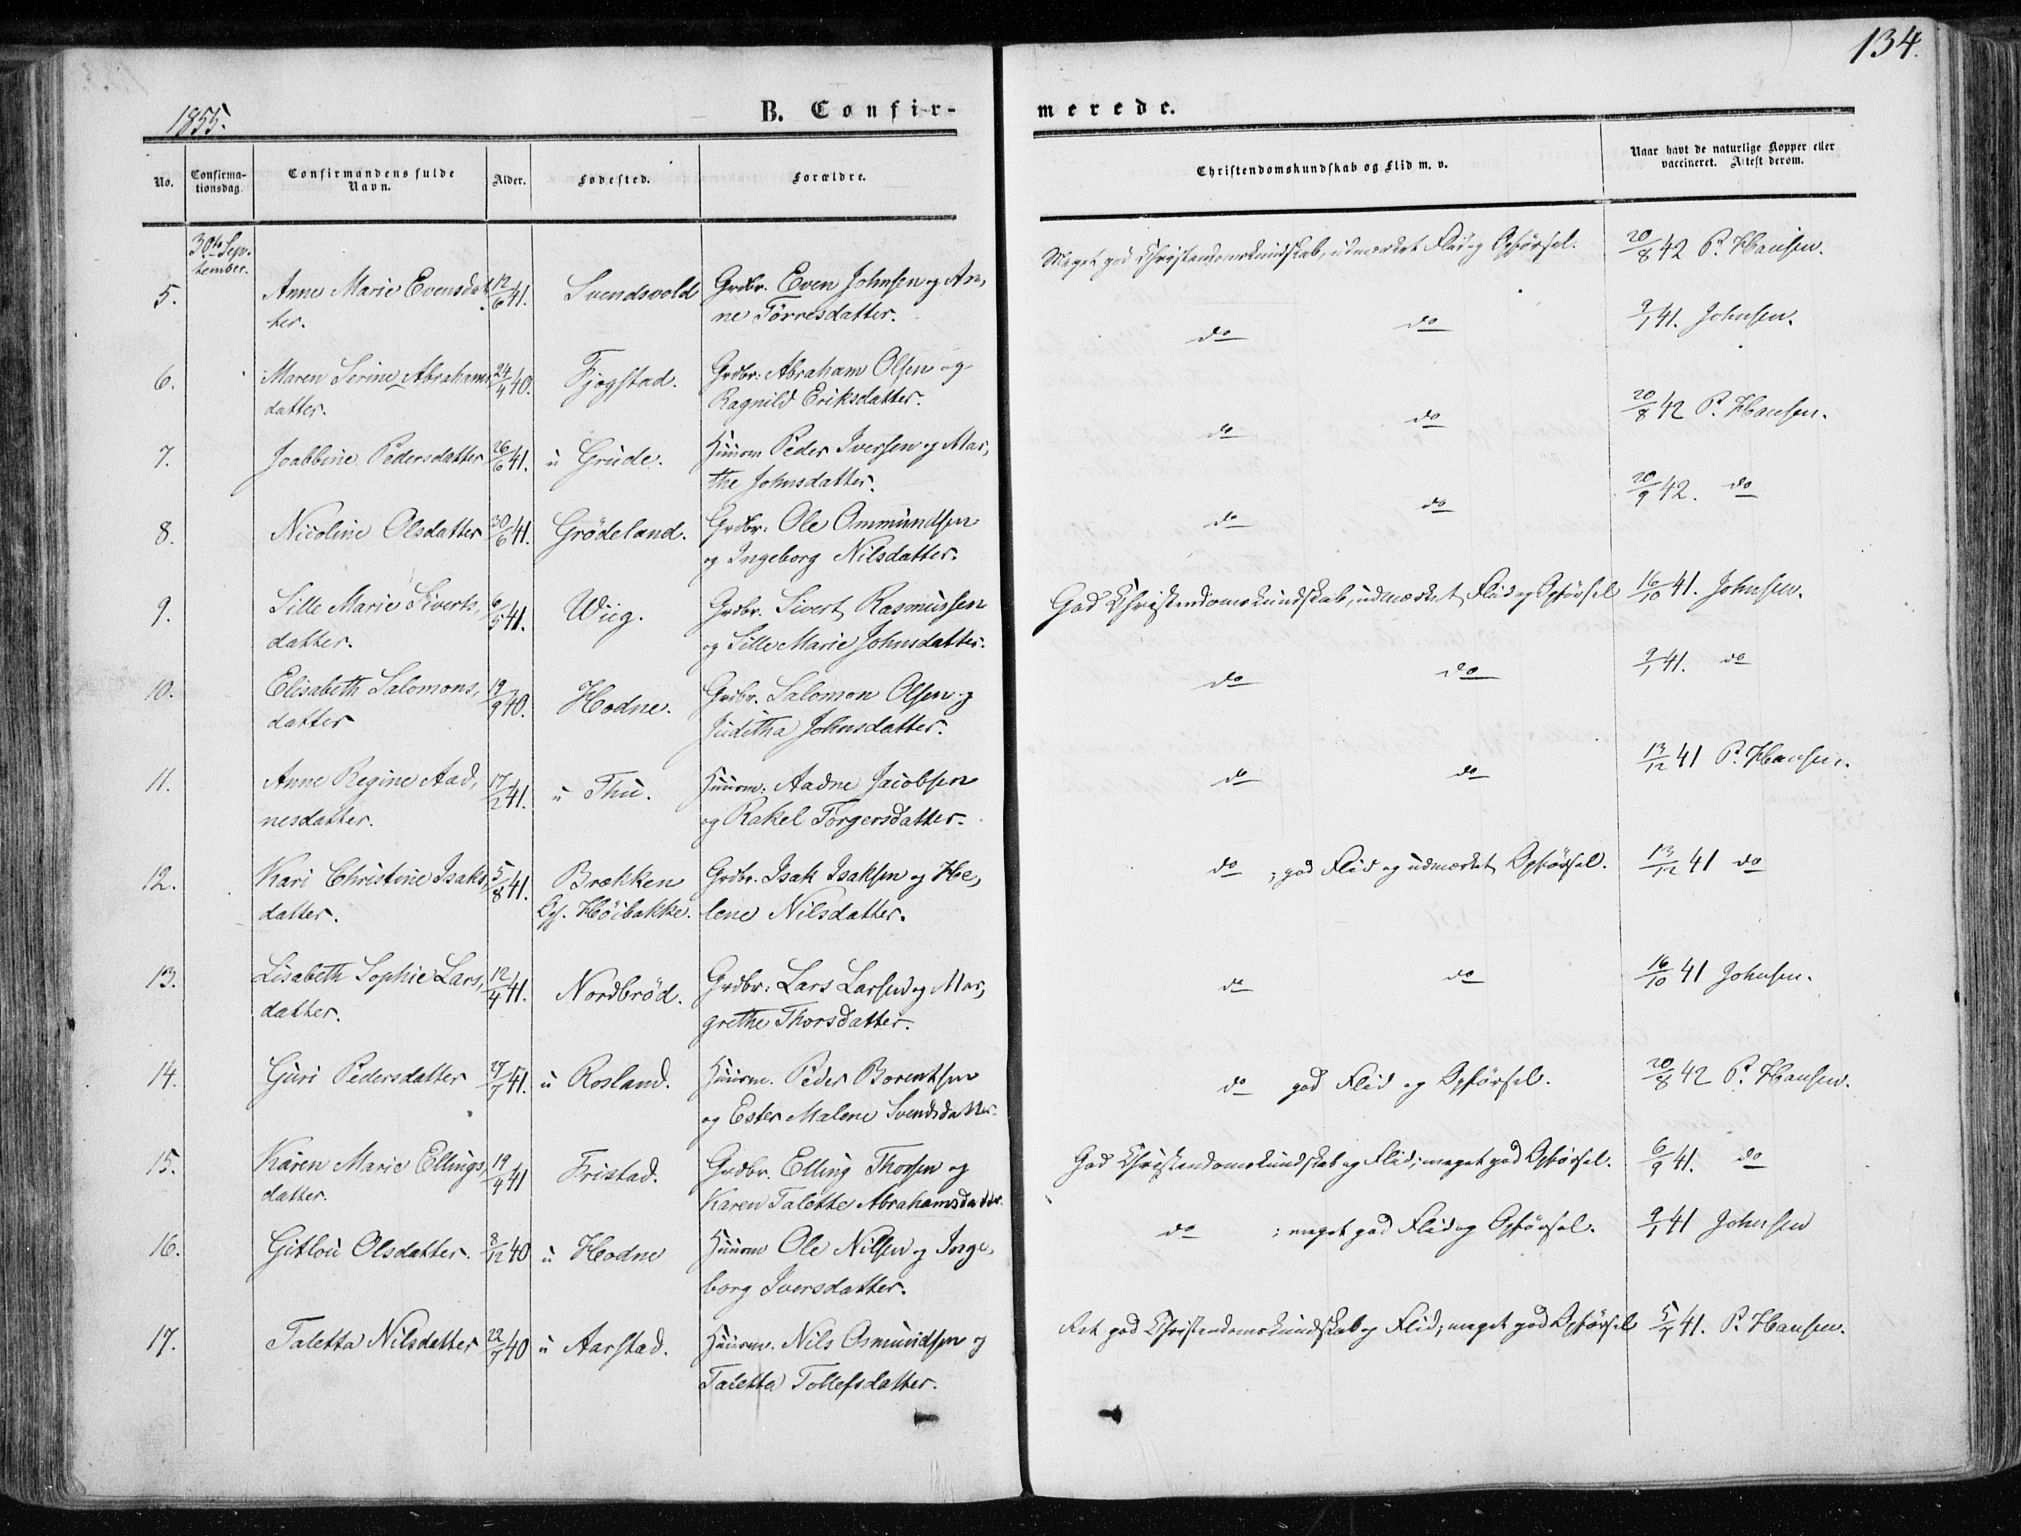 134.
1855.
B. Confir-
merede.
No.
Confirma-
tionsdag.
Confirmandens fulde
Navn.
Alder.
Fødested.
Forældre.
Christendomskundskab og Flid m. v.
Naar havt de naturlige Kopper eller
vaccineret. Attest derom.
30te Sep-
tember.
5. Anne Marie Evensdat- 12/6 41. Svendsvold Grdbr. Even Johnsen og An-
ter. ne Törresdatter.
Meget god Christendomskundskab, udmærket Flid og Opförsel. 20/8 42 P. Hansen.
6. Maren Serine Abrahams 24/4 40. Fjogstad. Grdbr: Abraham Olsen og
datter. Ragnild Eriksdatter.
do do 9/1 41. Johnsen.
7. Joabbine Pedersdatter 26/6 41. u Grude. Huusm Peder Iversen og Mar-
the Johnsdatter.
do do 20/8 42 P. Hansen.
8. Nicoline Olsdatter 30/6 41. Grödeland. Grdbr: Ole Ommundsen
og Ingeborg Nilsdatter.
do do 20/9 42. do
9. Sille Marie Siverts- 6/5 41. Wiig. Grdbr. Sivert Rasmussen
datter. og Sille Marie Johnsdatter.
God Christendomskundskab, udmærket Flid og Opförsel 16/10 41. Johnsen.
10. Elisabeth Salomons- 19/9 40. Hodne. Grdbr. Salomon Olsen og
datter Juditha Johnsdatter.
do do 9/1 41. do
11. Anne Regine Aad- 17/2 41. u Thu. Huusm: Aadne Jacobsen
nesdatter. og Rakel Torgersdatter.
do do 13/12 41 P. Hansen.
12. Kari Christine Isaks- 5/8 41. Brækken Grdbr. Isak Isaksen og He-
datter. Höibakke. lene Nilsdatter.
do ; god Flid og udmærket Opförsel. 13/12 41 do
13. Lisabeth Sophie Lars- 12/4 41. Nordbröd. Grdbr: Lars Larsen og Mar-
datter. grethe Thorsdatter.
do do 16/10 41 Johnsen.
14. Guri Pedersdatter 27/7 41. u Rosland. Huusm. Peder Borentsen
og Ester Malene Svendsdatter.
do god Flid og Opförsel. 20/8 42 P. Hansen.
15. Karen Marie Ellings- 19/4 41 Fristad. Grdbr. Elling Thorsen og
datter. Karen Talette Abrahamsdatter.
God Christendomskundskab og Flid; meget god Opförsel. 6/9 41. do
16. Gitlou Olsdatter. 8/12 40 u Hodne Huusm Ole Nilsen og Inge-
borg Iversdatter.
do ; meget god Flid og Opförsel. 9/1 41 Johnsen
17. Taletta Nilsdatter 22/7 40 u Aarstad. Huusm. Nils Osmundsen og
Taletta Tollefsdatter.
Ret god Christendomskundskab og Flid; meget god Opförsel 5/7 41. P. Hansen.